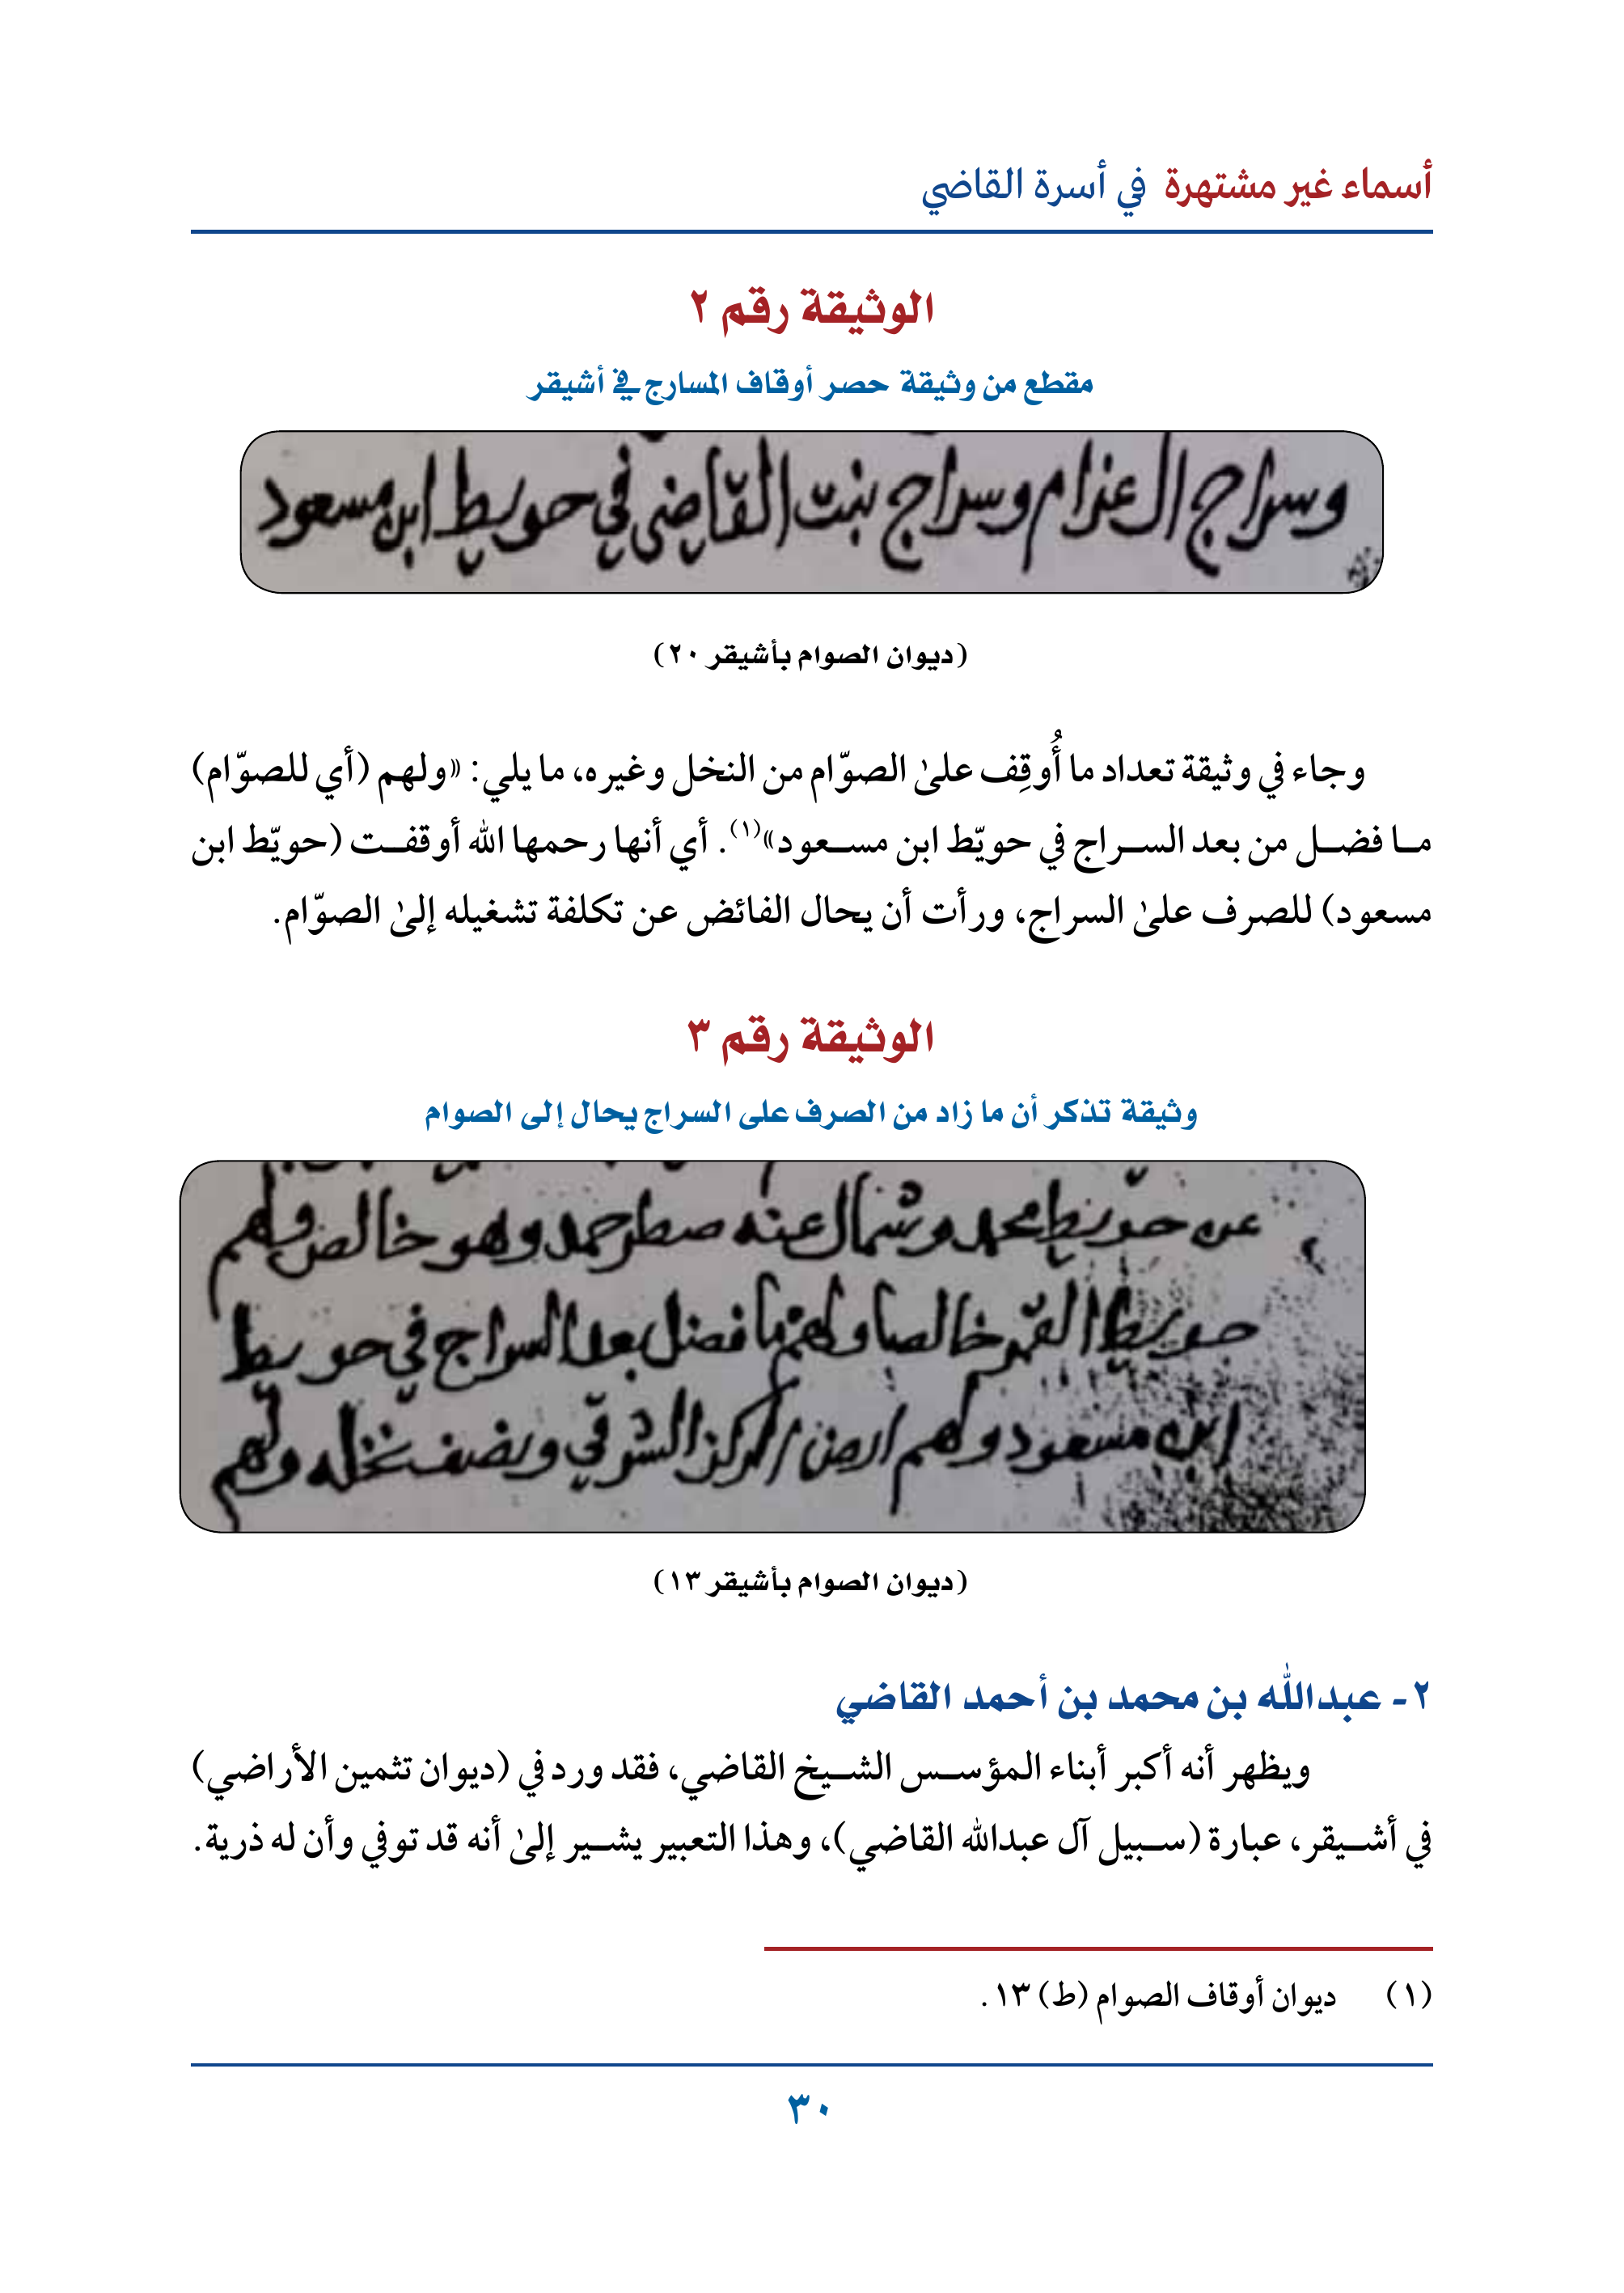 أسماء غير مشتهرة في أسرة القاضي
الوثيقة رقم ٢
مقطع من وثيقة حصر أوقاف المسارج في أشيقر
وسراج ال عزام وسراج بنت القاضي في حويط ابن مسعود
(ديوان الصوام بأشيقر ٢٠)
وجاء في وثيقة تعداد ما أُوقِف علىٰ الصوّام من النخل وغيره، ما يلي: «ولهم (أي للصوّام)
مـا فضـل من بعد السـراج في حويّط ابن مسـعود»(١). أي أنها رحمها الله أوقفـت (حويّط ابن
مسعود) للصرف علىٰ السراج، ورأت أن يحال الفائض عن تكلفة تشغيله إلىٰ الصوّام.
الوثيقة رقم ٣
وثيقة تذكر أن ما زاد من الصرف على السراج يحال إلى الصوام
عن حويط محمد وشمال عنه وهو خالص ولهم
حويط خالصا ولهم ما فضل بعد السراج في حويط
ابن مسعود ولهم ارض المركز الشرقي ونصف نخله ولهم
(ديوان الصوام بأشيقر ١٣)
٢- عبدالله بن محمد بن أحمد القاضي
ويظهر أنه أكبر أبناء المؤسـس الشـيخ القاضي، فقد ورد في (ديوان تثمين الأراضي)
في أشـيقر، عبارة (سـبيل آل عبدالله القاضي)، وهذا التعبير يشـير إلىٰ أنه قد توفي وأن له ذرية.
(١) ديوان أوقاف الصوام (ط) ١٣.
٣٠